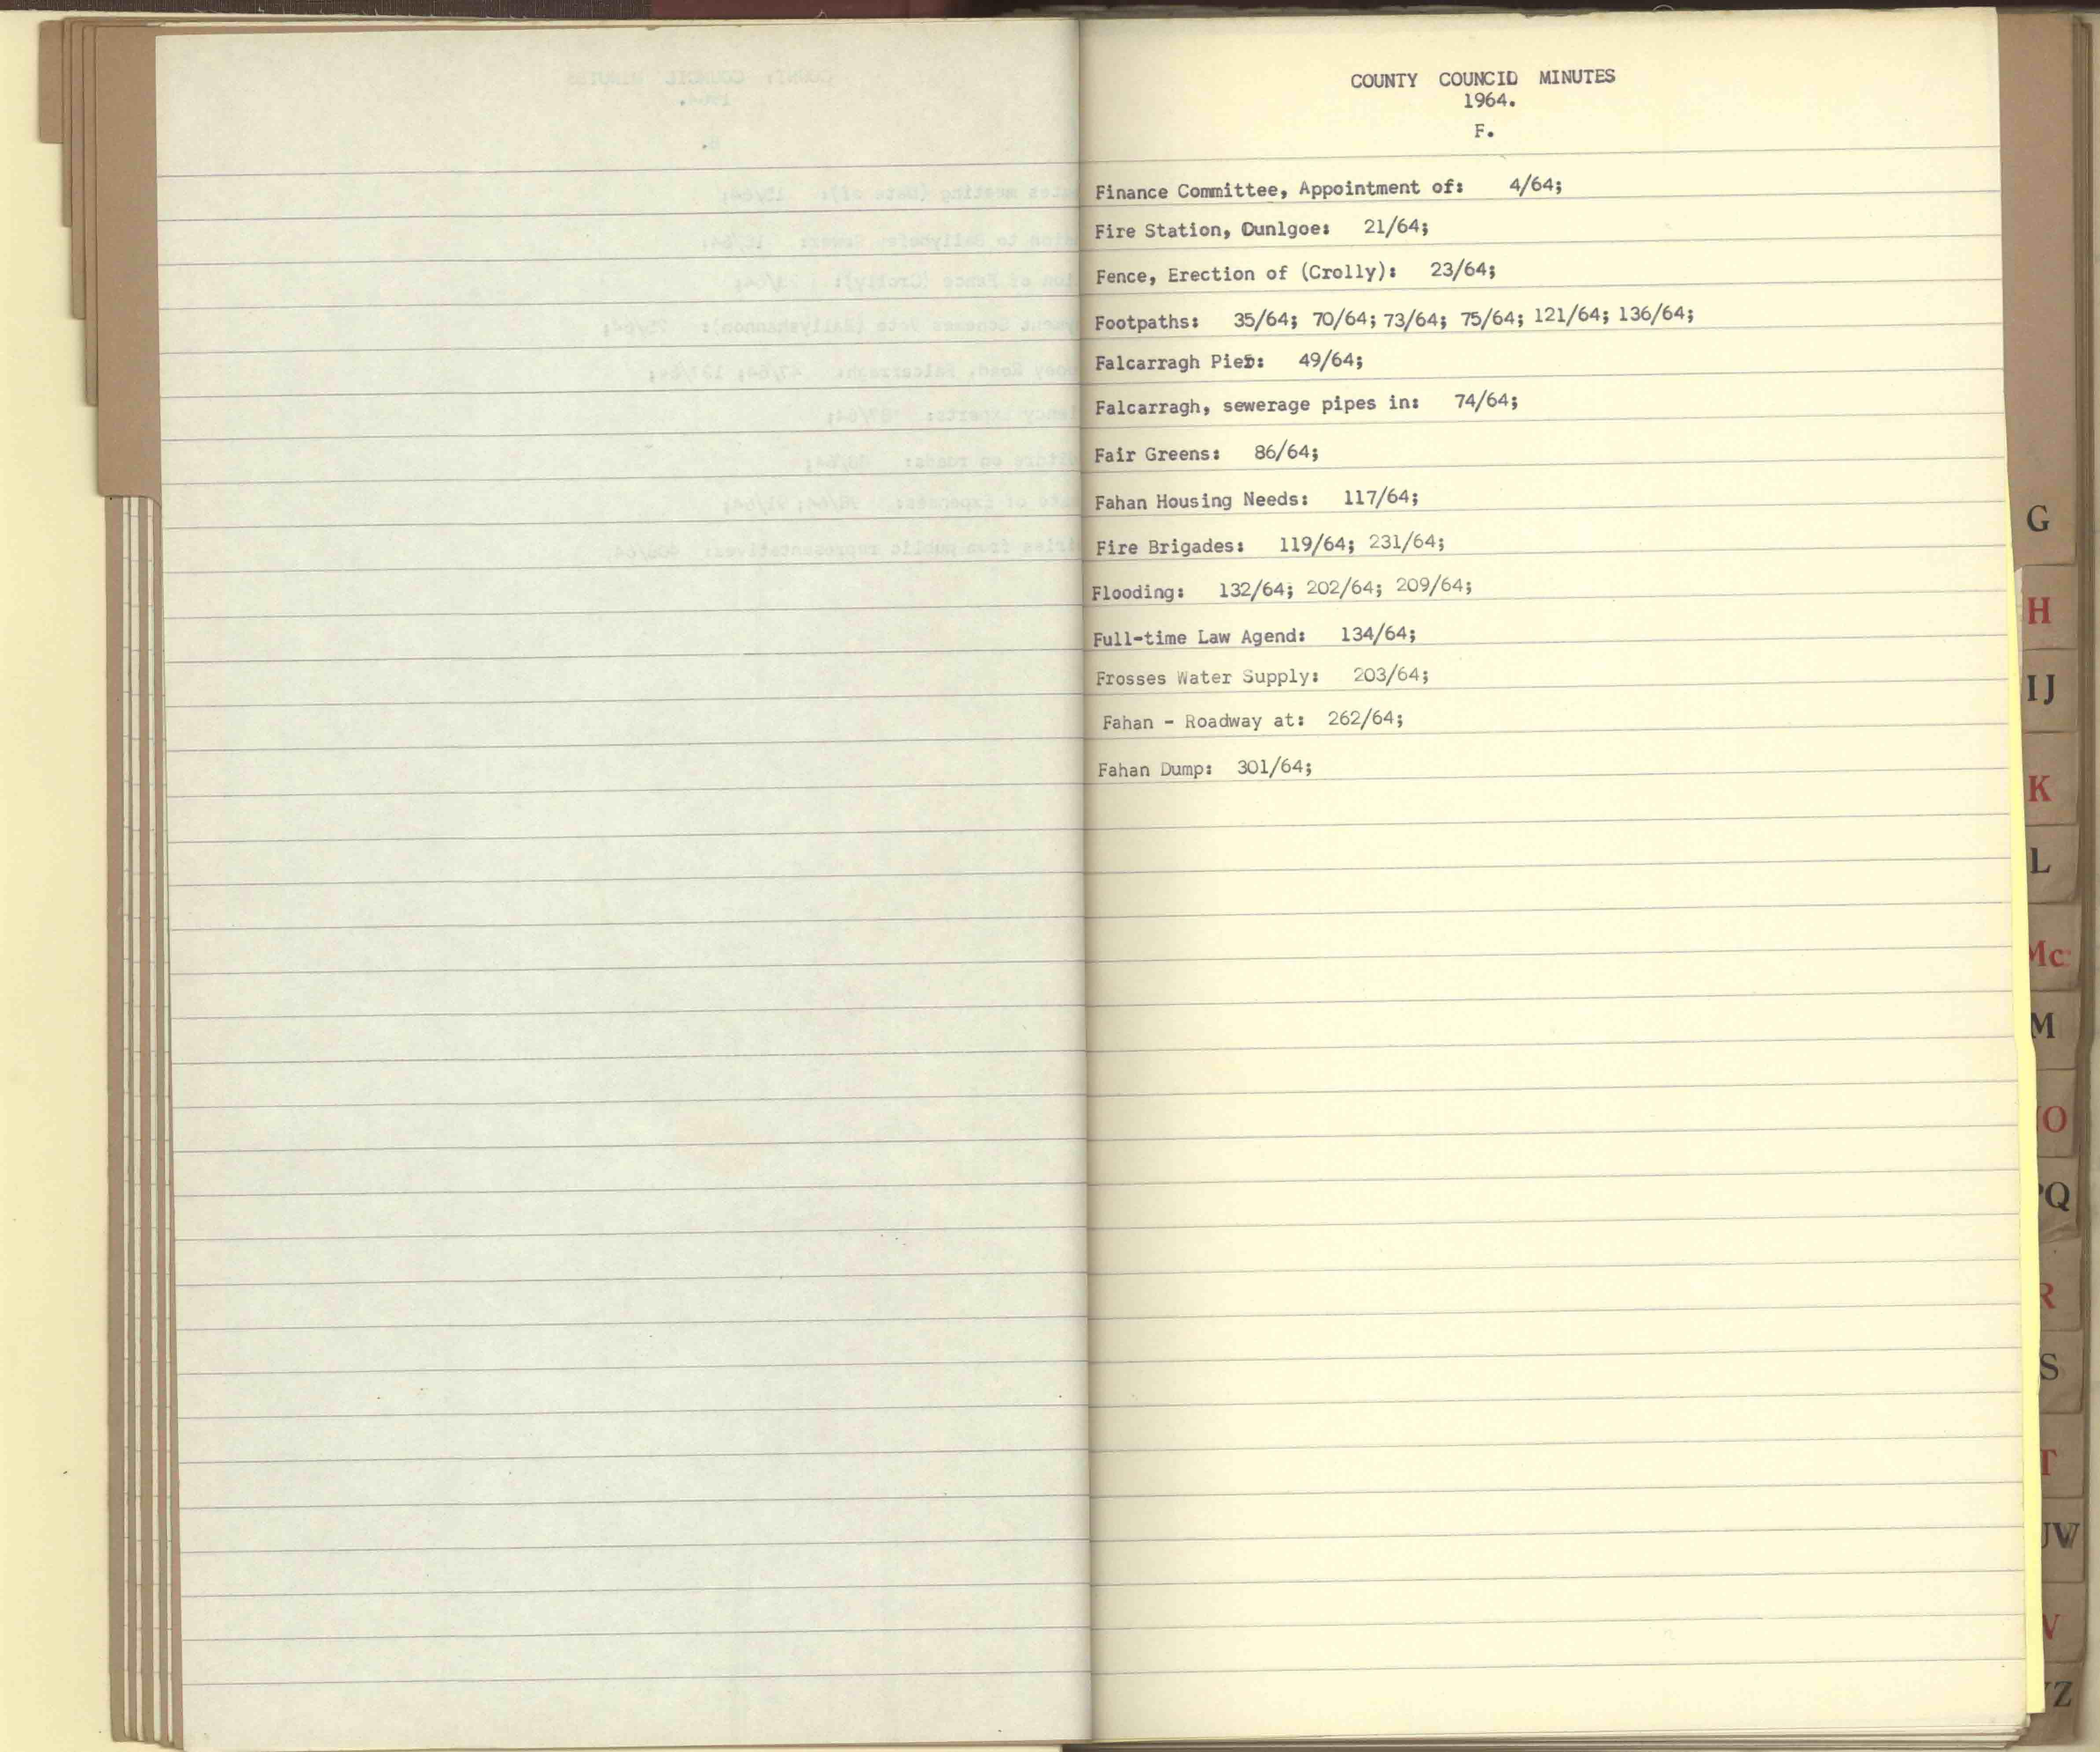 COUNTY COUNCIL MINUTES
1964.
F.
Finance Committee, Appointment of: 4/64;
Fire Station, Dunlgoe: 21/64;
Fence, Erection of (Crolly): 23/64;
Footpaths: 35/64; 70/64; 73/64; 75/64; 121/64; 136/64;
Falcarragh Pier: 49/64;
Falcarragh, sewerage pipes in: 74/64;
Fair Greens: 86/64;
Fahan Housing Needs: 117/64;
Fire Brigades: 119/64; 231/64;
Flooding: 132/64; 202/64; 209/64;
Full-time Law Agend: 134/64;
Frosses Water Supply: 203/64;
Fahan - Roadway at: 262/64;
Fahan Dump: 301/64;
G
H
IJ
K
L
Mc
M
O
Q
R
S
T
UW
V
Z